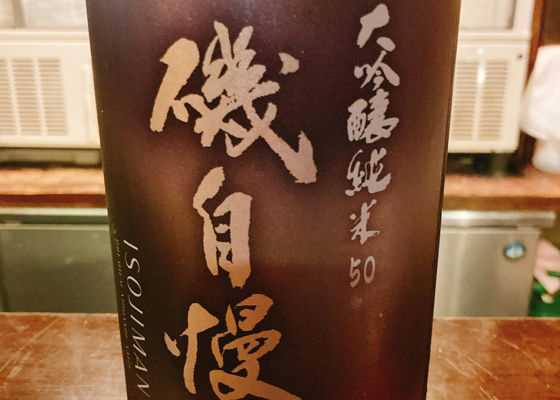 大吟醸純米50
磯自慢
ISOJIMAN